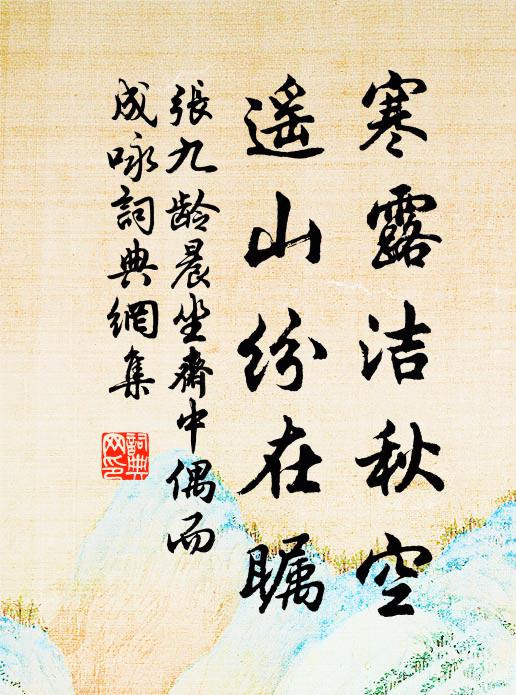 寒露洁秋空
遥山纷在瞩
張九龄晨坐斋中偶而
成咏詞典網集
詞典
网印